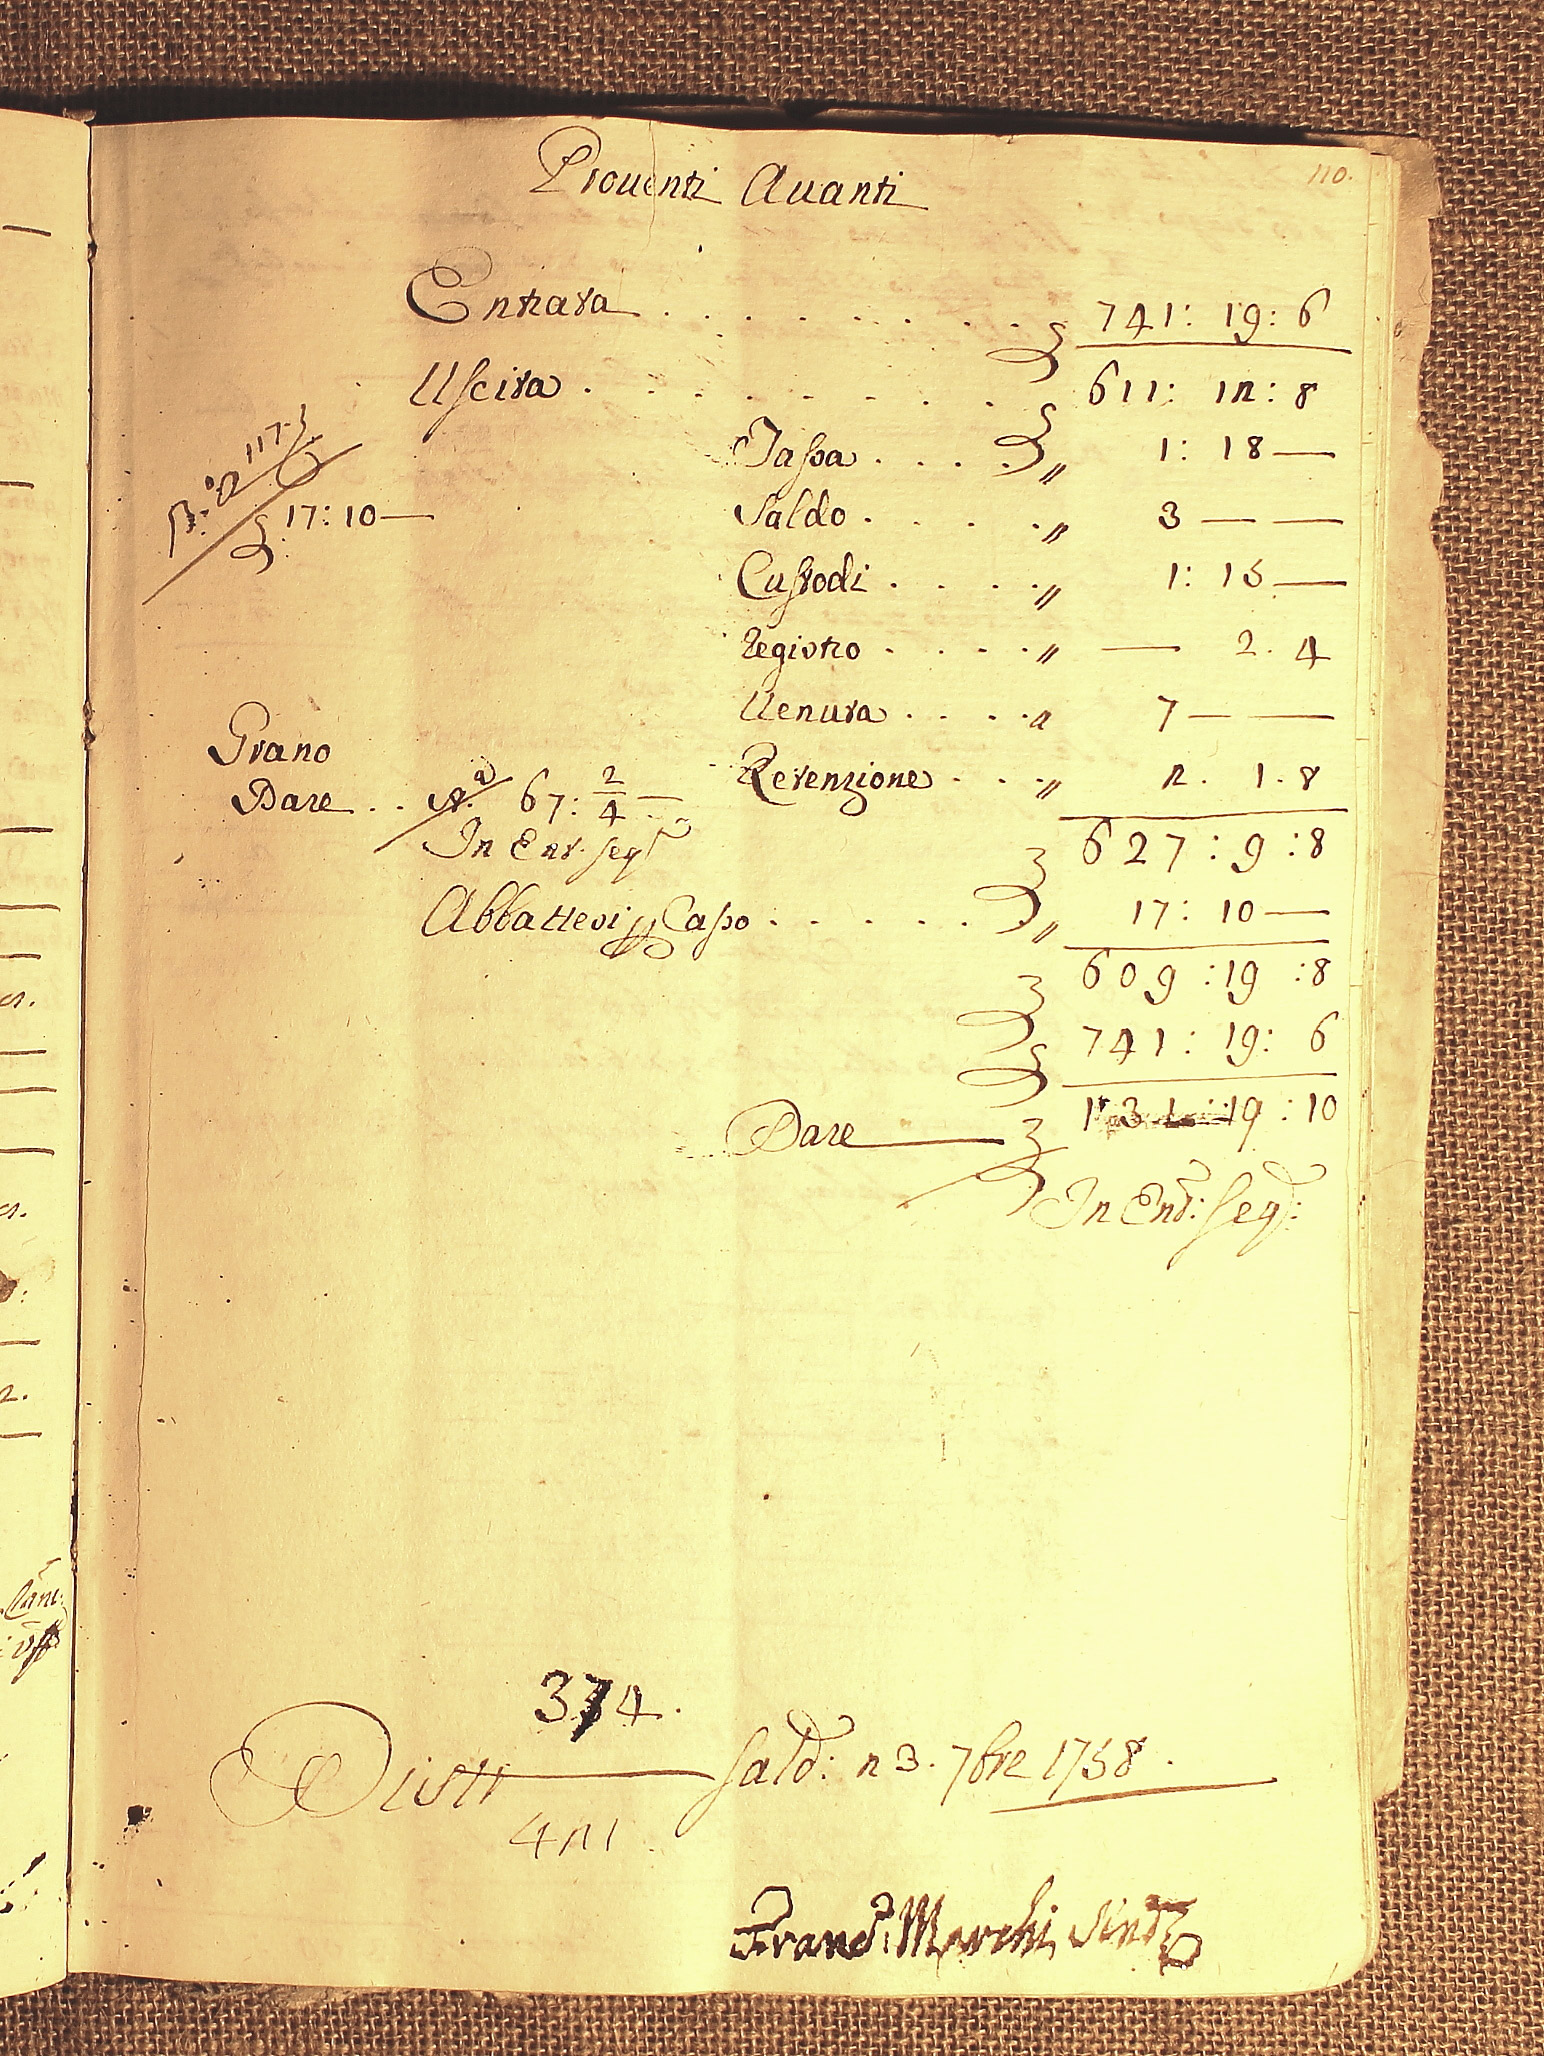 110.
Prouenti Auanti
Entrata . . . . . . . . . . 741: 19: 6
Uscita . . . . . . . . 611: 12: 8
Tassa . . . . " 1: 18 —
17: 10 —
Saldo . . . . " 3 — —
Custodi . . . . " 1: 15 —
Registro . . . . " — 2. 4
Uenuta . . . . " 7 — —
Grano
Retenzione . . . " 2. 1. 8
Dare . . 67: 2/4 —
In Ent. seg.
627 : 9 : 8
Abbattesi Casso . . . . . " 17: 10 —
609 : 19 : 8
741 : 19: 6
Dare 131 : 19 : 10
In Ent: Seg:
374.
Disti Sald: 23. 7bre 1758.
421
Franc: Marchi Sind